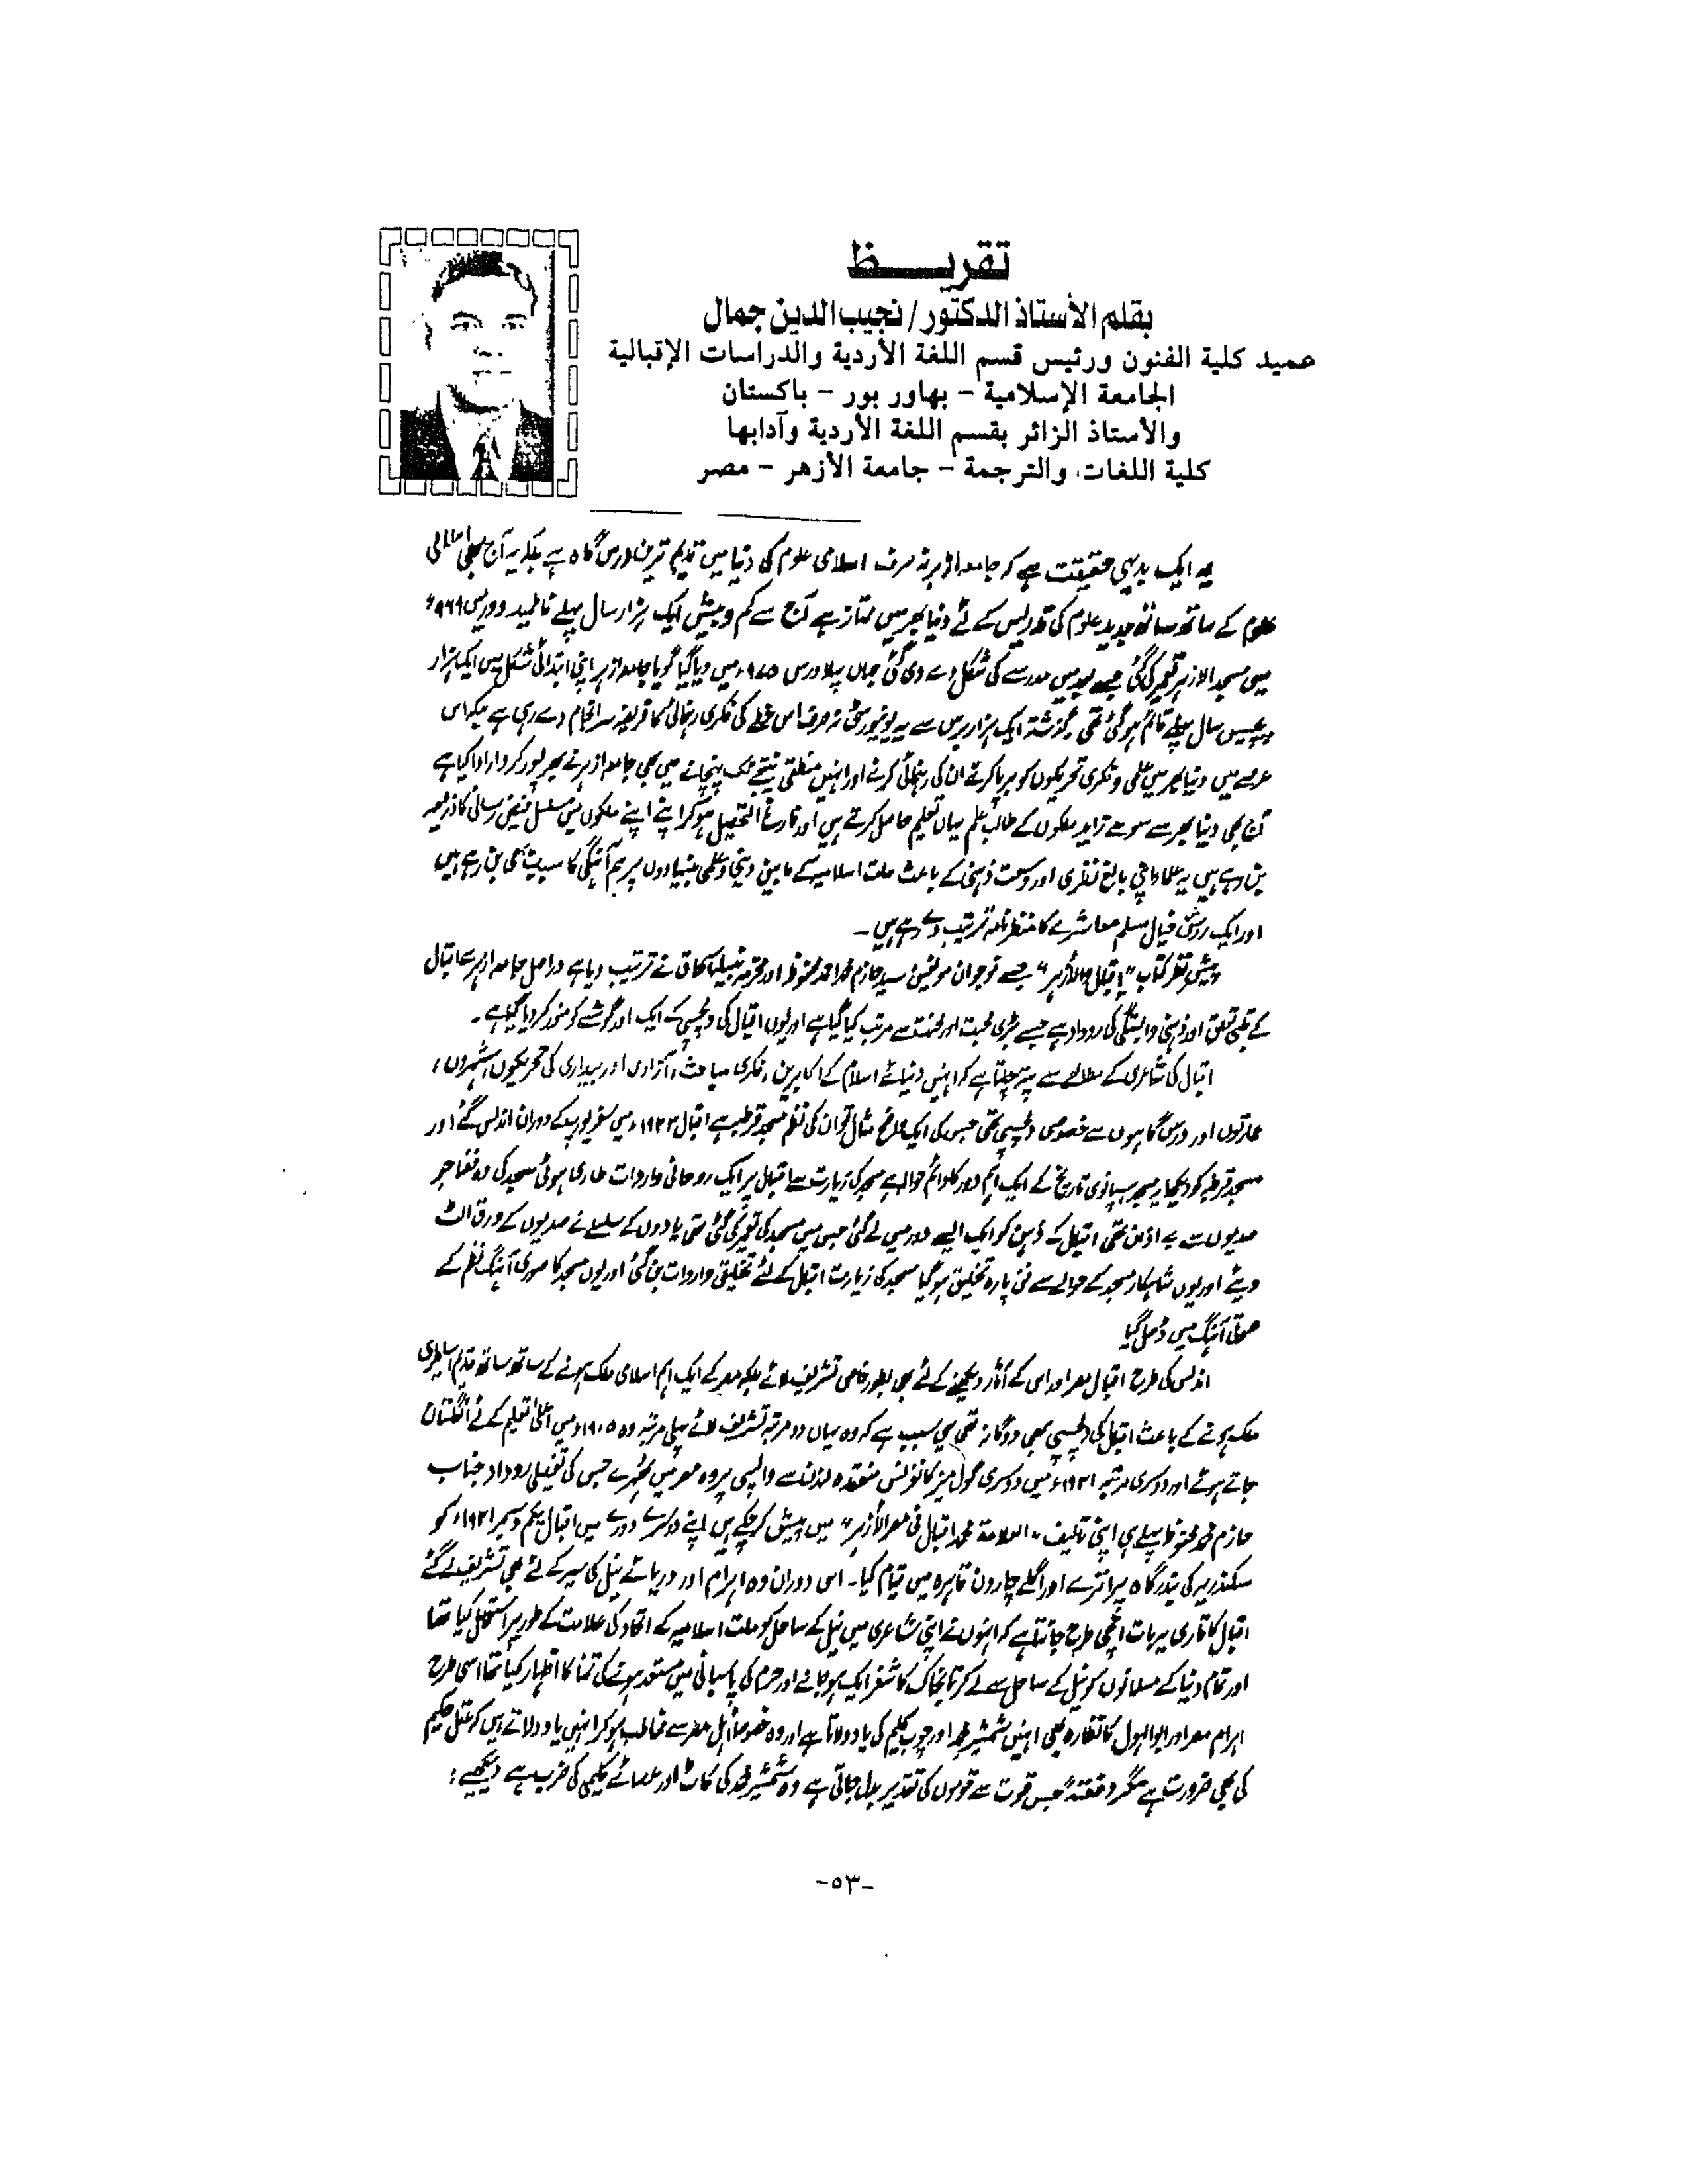 تقريــــظ
بقلم الأستاذ الدكتور / نجيب الدين جمال
عميد كلية الفنون ورئيس قسم اللغة الأردية والدراسات الإقبالية
الجامعة الإسلامية - بهاور بور - باكستان
والأستاذ الزائر بقسم اللغة الأردية وآدابها
كلية اللغات، والترجمة - جامعة الأزهر - مصر
یہ ایک بدیہی حقیقت ہے کہ جامعہ ازہر نہ صرف اسلامی علوم کی دنیا میں قدیم ترین درس گاہ ہے بلکہ یہ آج بھی اسلامی
علوم کے ساتھ ساتھ جدید علوم کی تدریس کے لئے دنیا بھر میں ممتاز ہے آج سے کم و بیش ایک ہزار سال پہلے فاطمید دور میں ۹۶۹ء
میں مسجد الازہر تعمیر کی گئی جسے بعد میں مدرسے کی شکل دے دی گئی جہاں پہلا درس ۹۷۵ء میں دیا گیا گویا جامعہ ازہر اپنی ابتدائی شکل میں ایک ہزار
پچیس سال پہلے قائم ہو گئی تھی گذشتہ ایک ہزار برس سے یہ یونیورسٹی نہ صرف اس خطے کی فکری رہنمائی کا فریضہ سر انجام دے رہی ہے بلکہ اس
عرصے میں دنیا بھر میں علمی و فکری تحریکوں کو برپا کرنے ان کی رہنمائی کرنے اور انہیں منطقی نتیجے تک پہنچانے میں بھی جامعہ ازہر نے بھر پور کردار ادا کیا ہے
آج بھی دنیا بھر سے سو سے زاید ملکوں کے طالب علم یہاں تعلیم حاصل کرتے ہیں اور فارغ التحصیل ہو کر اپنے اپنے ملکوں میں مسلسل فیض رسانی کا ذریعہ
بن رہے ہیں یہ علماء اپنی بالغ نظری اور وسعت ذہنی کے باعث ملت اسلامیہ کے مابین دینی و علمی بنیادوں پر ہم آہنگی کا سبب بھی بن رہے ہیں
اور ایک روشن خیال مسلم معاشرے کا منظر نامہ ترتیب دے رہے ہیں ۔
پیش نظر کتاب "إقبال والأزہر" جسے نوجوان مولفین سید حازم محمد احمد محفوظ اور محترمہ نبیلہ اسحاق نے ترتیب دیا ہے دراصل جامعہ ازہر سے اقبال
کے قلبی تعلق اور ذہنی وابستگی کی روداد ہے جسے بڑی محبت اور محنت سے مرتب کیا گیا ہے اور یوں اقبال کی دلچسپی کے ایک اور گوشے کو منور کر دیا گیا ہے ۔
اقبال کی شاعری کے مطالعے سے پتہ چلتا ہے کہ انہیں دنیائے اسلام کے اکابرین ، فکری مباحث ، آزادی اور بیداری کی تحریکوں ، شہروں ،
عمارتوں اور درس گاہوں سے خصوصی دلچسپی تھی جس کی ایک واضح مثال تو ان کی نظم مسجد قرطبہ ہے اقبال ۱۹۳۳ء میں سفر یورپ کے دوران اندلس گئے اور
مسجد قرطبہ کو دیکھا یہ مسجد ہسپانوی تاریخ کے ایک اہم دور کا دائم حوالہ ہے مسجد کی زیارت سے اقبال پر ایک روحانی واردات طاری ہوئی مسجد کی وہ فضا جو
صدیوں سے بے اذان تھی اقبال کے ذہن کو ایک ایسے دور میں لے گئی جس میں مسجد کی تعمیر کی گئی تھی یادوں کے سلسلے نے صدیوں کے ورق الٹ
دیئے اور یوں شاہکار مسجد کے حوالے سے فن پارہ تخلیق ہو گیا مسجد کی زیارت اقبال کے لئے تخلیقی واردات بن گئی اور یوں مسجد کا صوری آہنگ نظم کے
صوتی آہنگ میں ڈھل گیا
اندلس کی طرح اقبال مصر اور اس کے آثار دیکھنے کے لئے بھی بطور خاص تشریف لائے بلکہ مصر کے ایک اہم اسلامی ملک ہونے کے ساتھ ساتھ قدیم اساطیری
ملک ہونے کے باعث اقبال کی دلچسپی بھی دوگانہ تھی یہی سبب ہے کہ وہ یہاں دو مرتبہ تشریف لائے پہلی مرتبہ وہ ۱۹۰۵ء میں اعلیٰ تعلیم کے لئے انگلستان
جاتے ہوئے اور دوسری مرتبہ ۱۹۳۱ء میں دوسری گول میز کانفرنس منعقدہ لندن سے واپسی پر وہ مصر میں ٹھہرے جس کی تفصیلی روداد جناب
حازم محمد محفوظ پہلے ہی اپنی تالیف "العلامة محمد اقبال فی مصر الأزہر" میں پیش کر چکے ہیں اپنے دوسرے دورے میں اقبال یکم دسمبر ۱۹۳۱ء کو
سکندریہ کی بندرگاہ پر اترے اور اگلے چار دن قاہرہ میں قیام کیا ۔ اس دوران وہ اہرام اور دریائے نیل کی سیر کے لئے بھی تشریف لے گئے
اقبال کا قاری یہ بات اچھی طرح جانتا ہے کہ انہوں نے اپنی شاعری میں نیل کے ساحل کو ملت اسلامیہ کے اتحاد کی علامت کے طور پر استعمال کیا تھا
اور تمام دنیا کے مسلمانوں کو نیل کے ساحل سے لے کر تا بخاک کاشغر ایک ہو جانے اور حرم کی پاسبانی میں مستعد ہونے کی تمنا کا اظہار کیا تھا اسی طرح
اہرام مصر اور ابوالہول کا نظارہ بھی انہیں شمشیر محمد اور چوب کلیم کی یاد دلاتا ہے اور وہ خصوصاً اہل مصر سے مخاطب ہو کر انہیں یاد دلاتے ہیں کہ عقل حکیم
کی بھی ضرورت ہے مگر دفعتہً جس قوت سے قوموں کی تقدیر بدل جاتی ہے وہ شمشیر محمد کی کاٹ اور عصائے کلیمی کی ضرب ہے دیکھیے :
-٥٣-